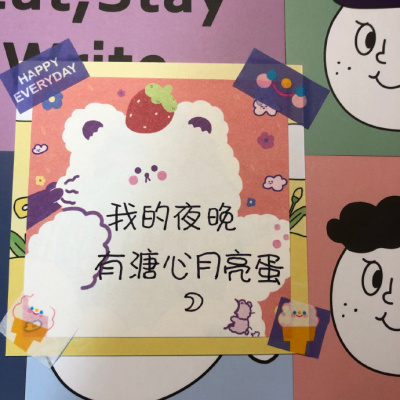 at,Stay
Write
HAPPY
EVERYDAY
我的夜晚
有溏心月亮蛋